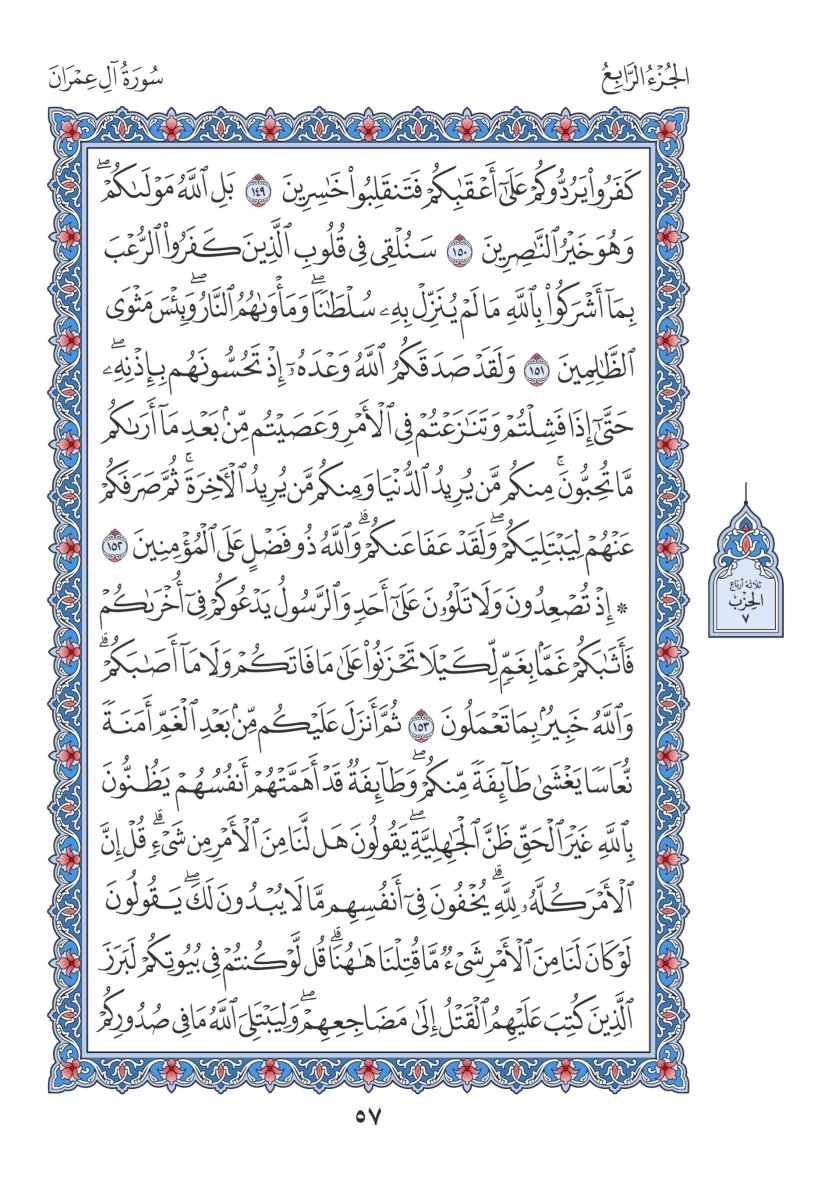 الجُزْءُ الرَّابِعُ
سُورَةُ آلِ عِمْرَانَ
كَفَرُواْ يَرُدُّوكُمْ عَلَىٰٓ أَعْقَٰبِكُمْ فَتَنقَلِبُواْ خَٰسِرِينَ ١٤٩ بَلِ ٱللَّهُ مَوْلَىٰكُمْۖ
وَهُوَ خَيْرُ ٱلنَّٰصِرِينَ ١٥٠ سَنُلْقِى فِى قُلُوبِ ٱلَّذِينَ كَفَرُواْ ٱلرُّعْبَ
بِمَآ أَشْرَكُواْ بِٱللَّهِ مَا لَمْ يُنَزِّلْ بِهِۦ سُلْطَٰنًاۖ وَمَأْوَىٰهُمُ ٱلنَّارُۖ وَبِئْسَ مَثْوَى
ٱلظَّٰلِمِينَ ١٥١ وَلَقَدْ صَدَقَكُمُ ٱللَّهُ وَعْدَهُۥٓ إِذْ تَحُسُّونَهُم بِإِذْنِهِۦۖ
حَتَّىٰٓ إِذَا فَشِلْتُمْ وَتَنَٰزَعْتُمْ فِى ٱلْأَمْرِ وَعَصَيْتُم مِّنۢ بَعْدِ مَآ أَرَىٰكُم
مَّا تُحِبُّونَۚ مِنكُم مَّن يُرِيدُ ٱلدُّنْيَا وَمِنكُم مَّن يُرِيدُ ٱلْءَاخِرَةَۚ ثُمَّ صَرَفَكُمْ
عَنْهُمْ لِيَبْتَلِيَكُمْۖ وَلَقَدْ عَفَا عَنكُمْۗ وَٱللَّهُ ذُو فَضْلٍ عَلَى ٱلْمُؤْمِنِينَ ١٥٢
* إِذْ تُصْعِدُونَ وَلَا تَلْوُۥنَ عَلَىٰٓ أَحَدٍ وَٱلرَّسُولُ يَدْعُوكُمْ فِىٓ أُخْرَىٰكُمْ
فَأَثَٰبَكُمْ غَمًّۢا بِغَمٍّ لِّكَيْلَا تَحْزَنُواْ عَلَىٰ مَا فَاتَكُمْ وَلَا مَآ أَصَٰبَكُمْۗ
وَٱللَّهُ خَبِيرٌۢ بِمَا تَعْمَلُونَ ١٥٣ ثُمَّ أَنزَلَ عَلَيْكُم مِّنۢ بَعْدِ ٱلْغَمِّ أَمَنَةً
نُّعَاسًا يَغْشَىٰ طَآئِفَةً مِّنكُمْۖ وَطَآئِفَةٌ قَدْ أَهَمَّتْهُمْ أَنفُسُهُمْ يَظُنُّونَ
بِٱللَّهِ غَيْرَ ٱلْحَقِّ ظَنَّ ٱلْجَٰهِلِيَّةِۖ يَقُولُونَ هَل لَّنَا مِنَ ٱلْأَمْرِ مِن شَىْءٍۗ قُلْ إِنَّ
ٱلْأَمْرَ كُلَّهُۥ لِلَّهِۗ يُخْفُونَ فِىٓ أَنفُسِهِم مَّا لَا يُبْدُونَ لَكَۖ يَقُولُونَ
لَوْ كَانَ لَنَا مِنَ ٱلْأَمْرِ شَىْءٌ مَّا قُتِلْنَا هَٰهُنَاۗ قُل لَّوْ كُنتُمْ فِى بُيُوتِكُمْ لَبَرَزَ
ٱلَّذِينَ كُتِبَ عَلَيْهِمُ ٱلْقَتْلُ إِلَىٰ مَضَاجِعِهِمْۖ وَلِيَبْتَلِىَ ٱللَّهُ مَا فِى صُدُورِكُمْ
ثَلَاثَةُ أَرْبَاعِ
الحِزْبِ
٧
٥٧